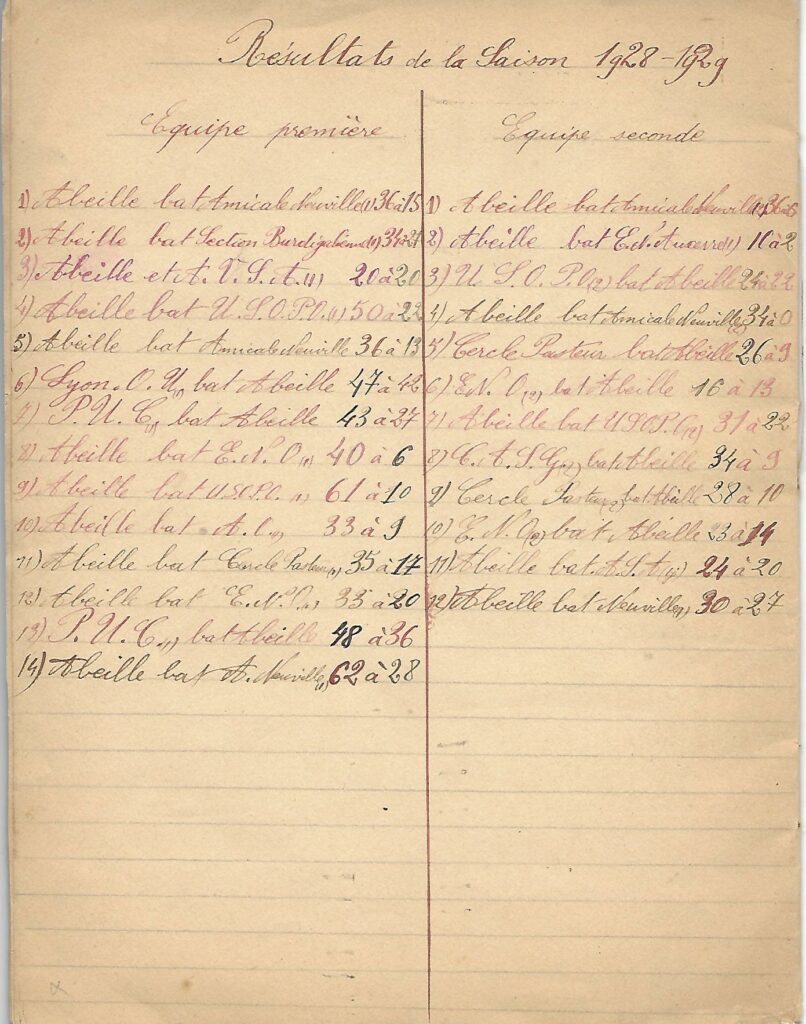 Résultats de la Saison 1928-1929
Equipe première
1) Abeille bat Amicale Neuville (1) 36 à 15
2) Abeille bat Section Burdigalienne (1) 34 à 21
3) Abeille et A. V. S. A. (1) 20 à 20
4) Abeille bat U. S. O. P. O. (1) 50 à 22
5) Abeille bat Amicale Neuville 36 à 13
6) Lyon. O. U. (1) bat Abeille 47 à 42
7) P. U. C. (1) bat Abeille 43 à 27
8) Abeille bat E. N. O. (1) 40 à 6
9) Abeille bat U.S.O.P.O. (1) 61 à 10
10) Abeille bat (1) 33 à 9
11) Abeille bat Cercle Pasteur (1) 35 à 17
12) Abeille bat E. N. O. (1) 33 à 20
13) P. U. C. (1) bat Abeille 48 à 36
14) Abeille bat A. Neuville (1) 62 à 28
Equipe seconde
1) Abeille bat Amicale Neuville
2) Abeille bat E. N. (1) 10 à 2
3) U. S. O. P. O. (2) bat Abeille 24 à 22
4) Abeille bat Amicale Neuville 34 à 0
5) Cercle Pasteur bat Abeille 26 à 9
6) E. N. O. (2) bat Abeille 16 à 13
7) Abeille bat U S O P. (2) 31 à 22
8) C. A. S. G. (2) bat Abeille 34 à 9
9) Cercle Pasteur (2) bat Abeille 28 à 10
10) E. N. O. (2) bat Abeille 23 à 14
11) Abeille bat A. S. A. 24 à 20
12) Abeille bat Neuville 30 à 27